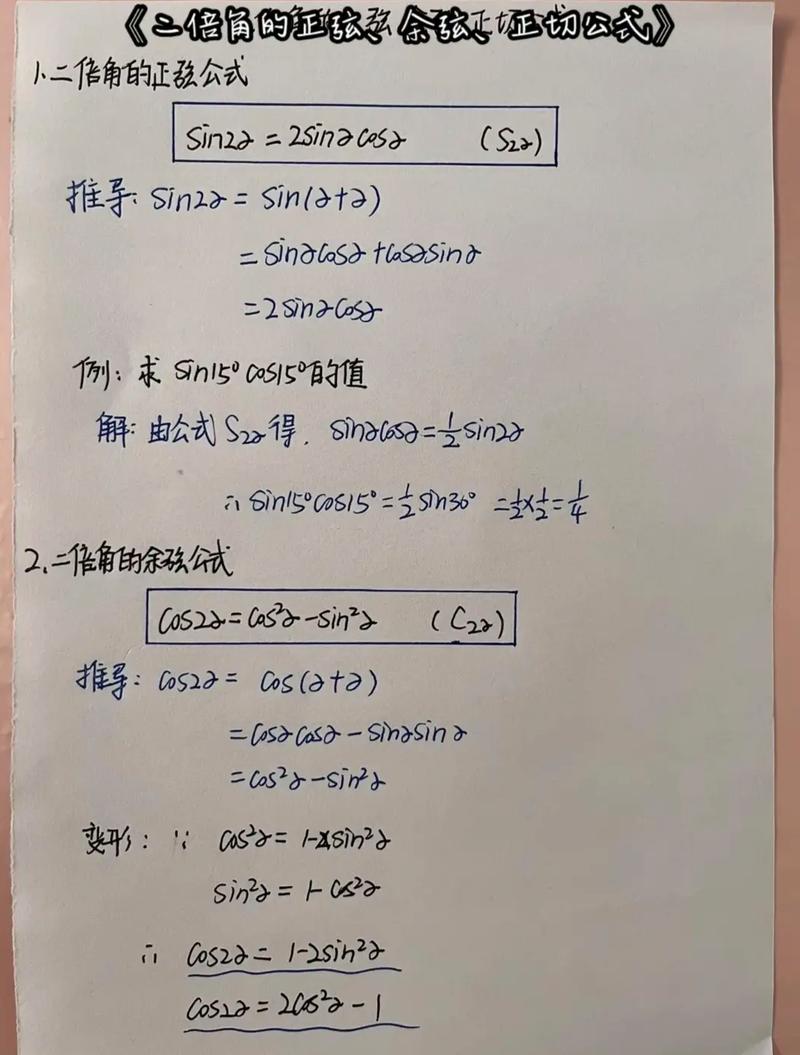 《二倍角的正弦、余弦、正切公式》
1、二倍角的正弦公式
sin2α = 2sinαcosα (S₂α)
推导: sin2α = sin(α+α)
= sinαcosα + cosαsinα
= 2sinαcosα
例: 求 sin15° cos15° 的值
解: 由公式 S₂α 得, sinαcosα = 1/2 sin2α
∴ sin15° cos15° = 1/2 sin30° = 1/2 × 1/2 = 1/4
2、二倍角的余弦公式
cos2α = cos²α - sin²α (C₂α)
推导: cos2α = cos(α+α)
= cosαcosα - sinαsinα
= cos²α - sin²α
变形: ∵ cos²α = 1-sin²α
sin²α = 1-cos²α
∴ cos2α = 1-2sin²α
cos2α = 2cos²α - 1